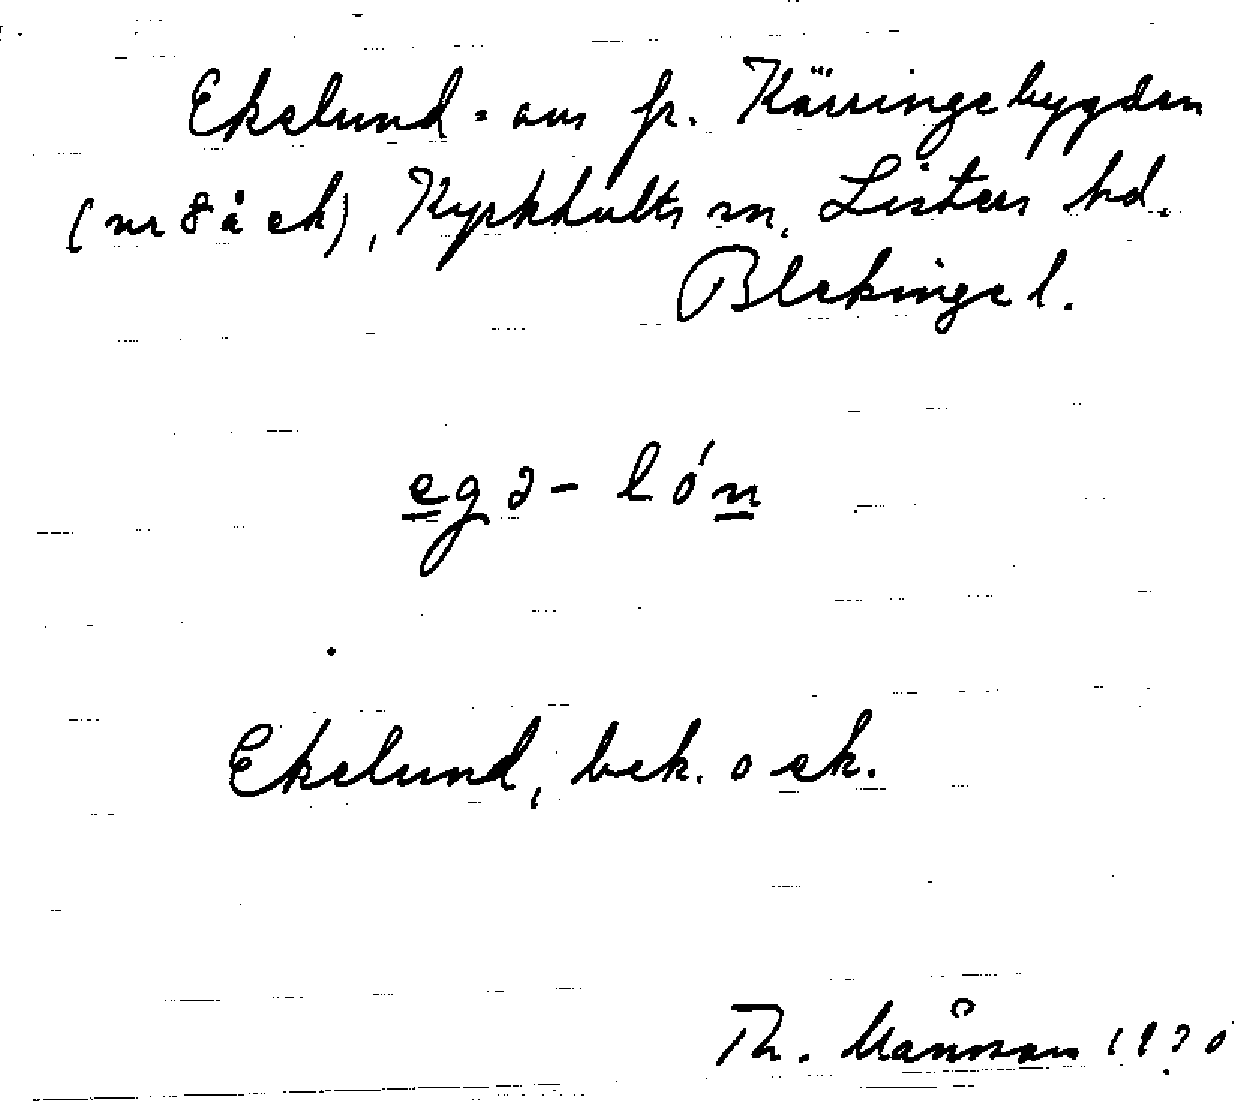 Ekelund = avs fr. Kärringebygden
(nr 8 å ek), Kyrkhults sn, Listers hd.
Blekinge l.
egə- lón
Ekelund, bek. o ek.
Th. Månsson 1930